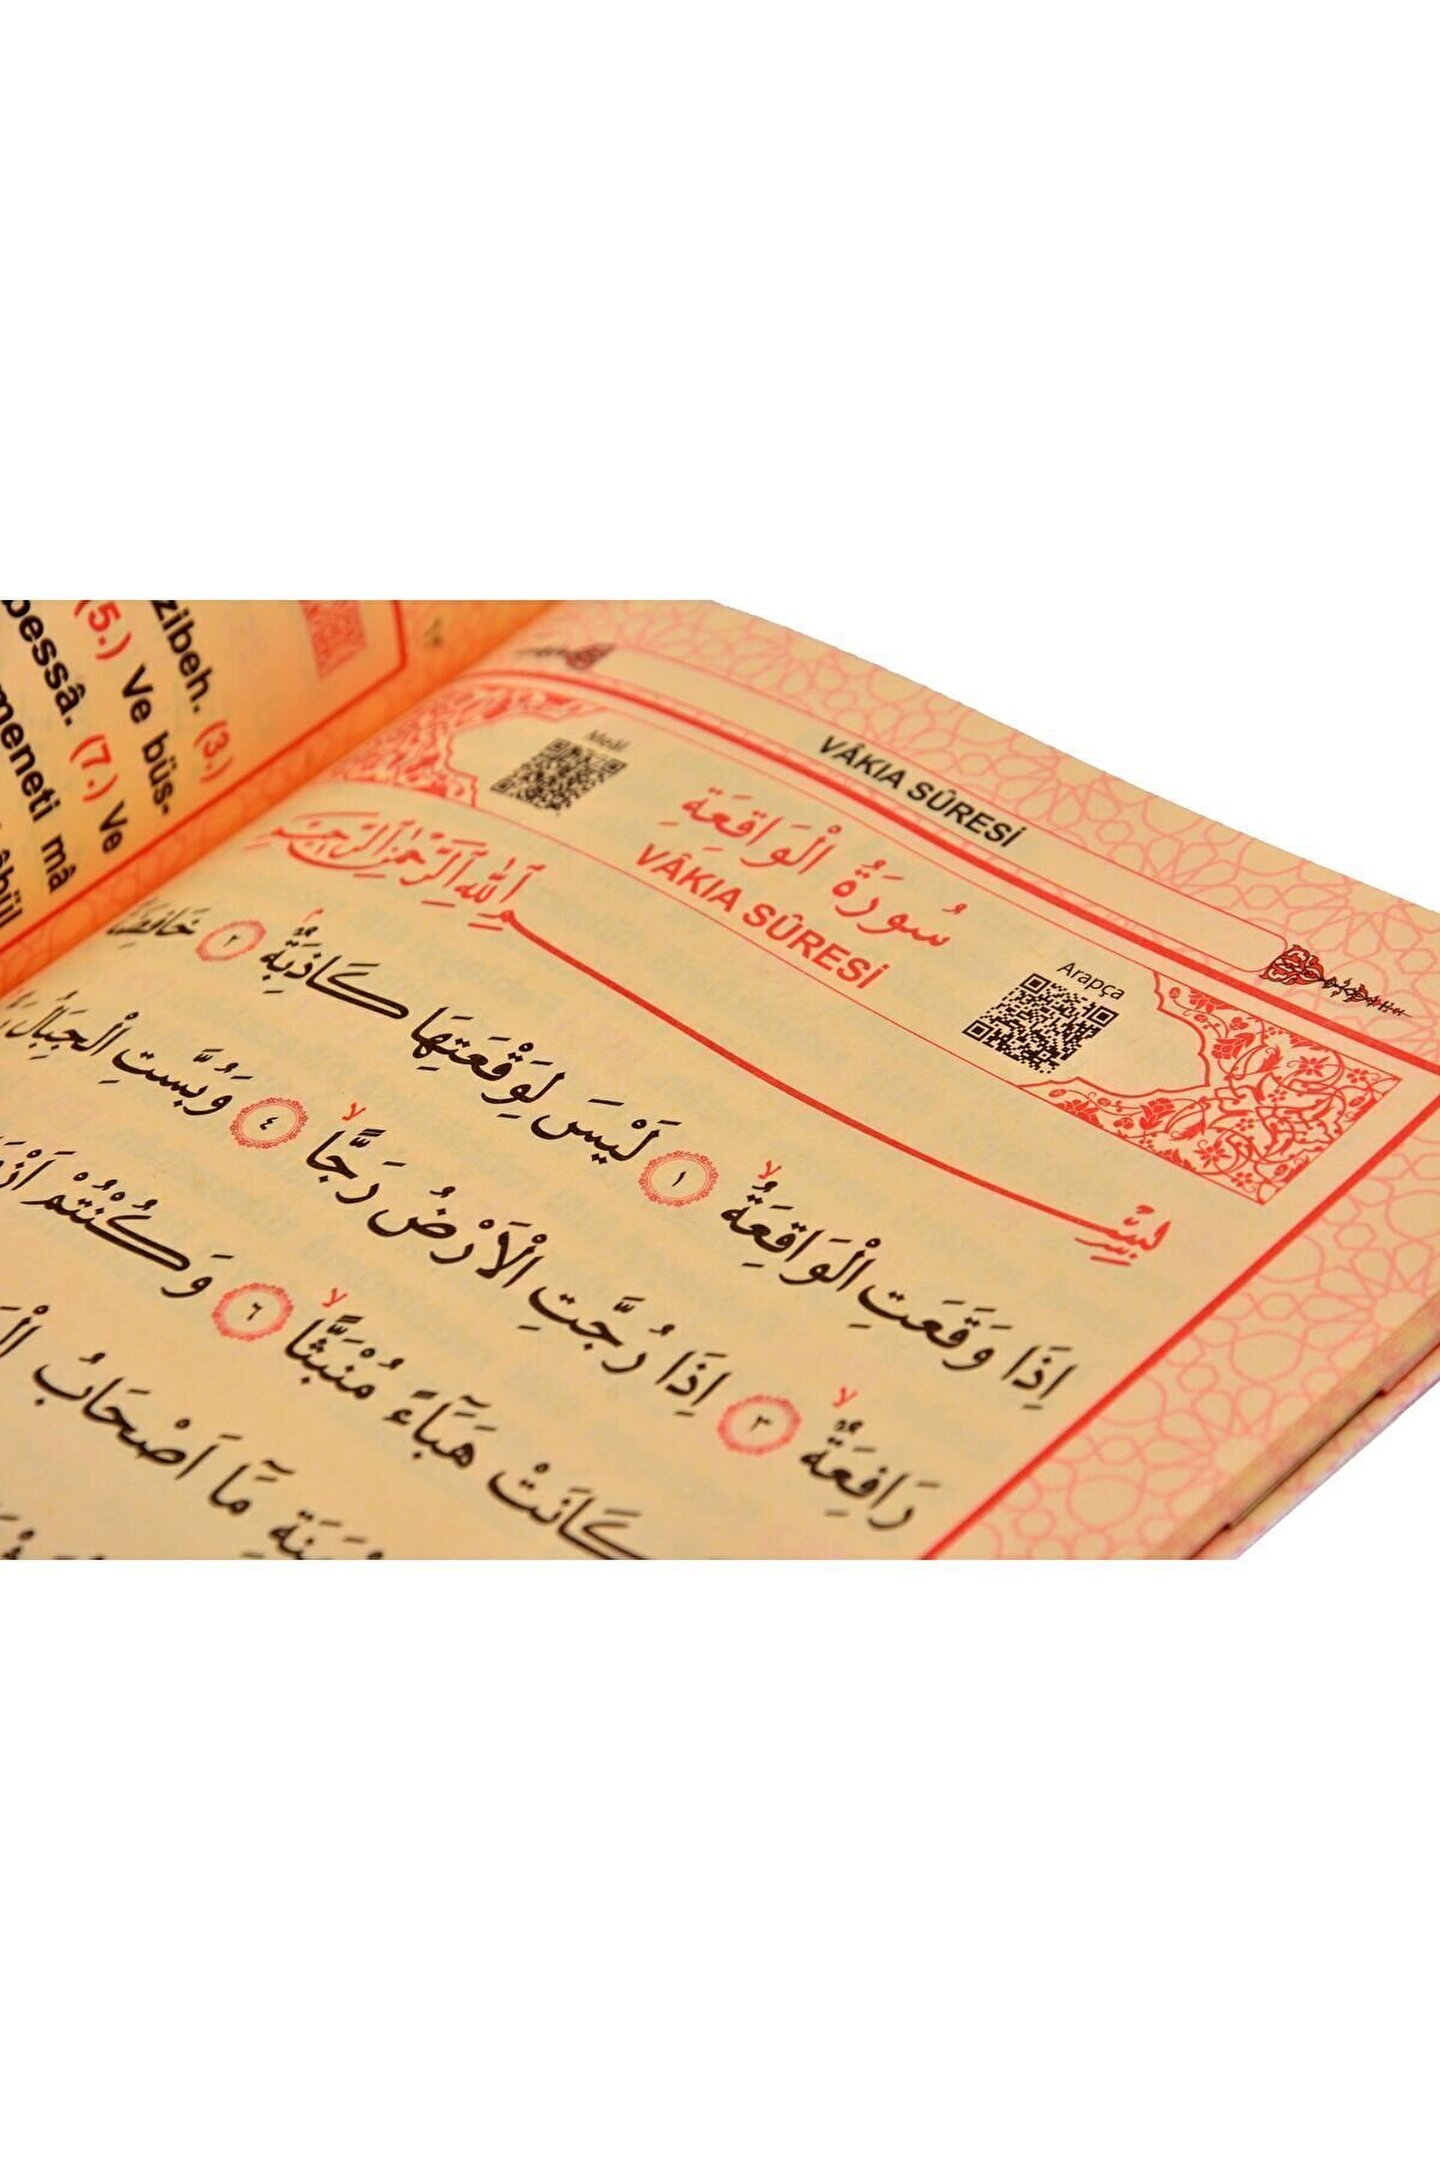 zibeh. (3.)
(5.) Ve büs-
bessâ. (7.) Ve
meneti mâ
VÂKIA SÛRESİ
Meâl
سُورَةُ الْوَاقِعَةِ
VÂKIA SÛRESİ
Arapça
بِسْمِ اللّٰهِ الرَّحْمٰنِ الرَّحِيمِ
اِذَا وَقَعَتِ الْوَاقِعَةُۙ ﴿١﴾ لَيْسَ لِوَقْعَتِهَا كَاذِبَةٌۢ ﴿٢﴾ خَافِضَةٌ
رَافِعَةٌۙ ﴿٣﴾ اِذَا رُجَّتِ الْاَرْضُ رَجًّاۙ ﴿٤﴾ وَبُسَّتِ الْجِبَالُ
كَانَتْ هَبَٓاءً مُنْبَثًّاۙ ﴿٦﴾ وَكُنْتُمْ
مَٓا اَصْحَابُ